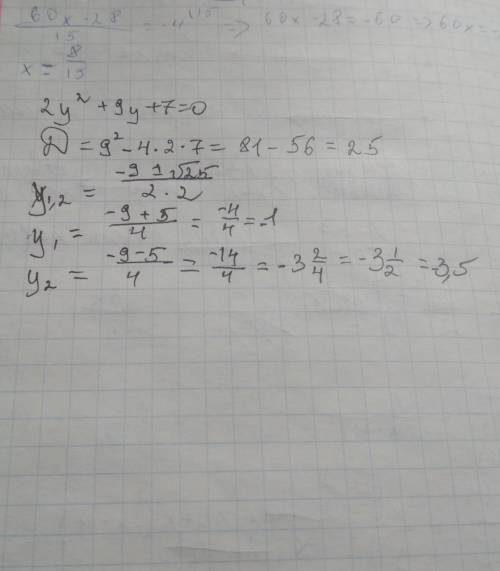 (60x - 28)/15 = -4 |·15 => 60x - 28 = -60 => 60x = -
x = 8/15
2y² + 9y + 7 = 0
D = 9² - 4 · 2 · 7 = 81 - 56 = 25
y₁,₂ = (-9 ± √25)/(2 · 2)
y₁ = (-9 + 5)/4 = -4/4 = -1
y₂ = (-9 - 5)/4 = -14/4 = -3 2/4 = -3 1/2 = -3,5